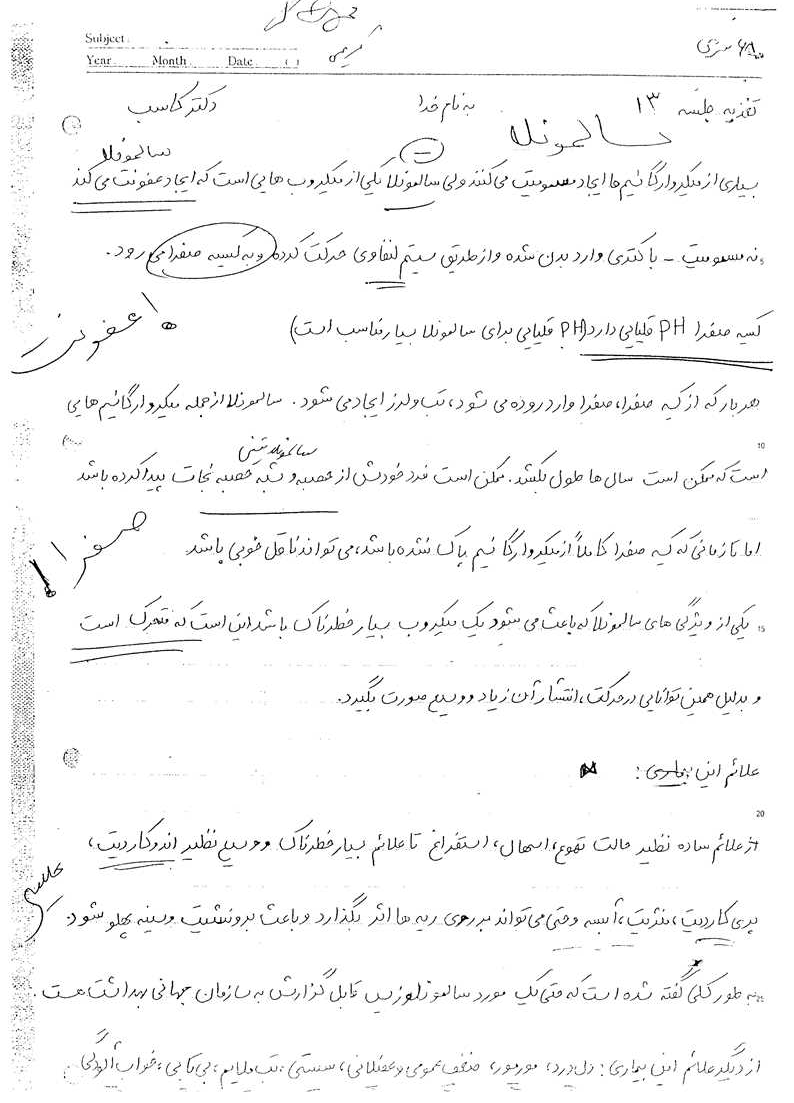 Subject:
Year Month Date ( )
کریمی
تغذیه جلسه ۱۳ به نام خدا دکتر کاسب
سالمونلا
سالمونلا
بسیاری از میکروارگانیسم ها ایجاد مسمومیت می کنند ولی سالمونلا یکی از میکروب هایی است که ایجاد عفونت می کند
نه مسمومیت - باکتری وارد بدن شده و از طریق سیستم لنفاوی حرکت کرده و به کیسه صفرا می رود.
کیسه صفرا PH قلیایی دارد (PH قلیایی برای سالمونلا بسیار مناسب است)
عفونت
هر بار که از کیسه صفرا، صفرا وارد روده می شود، تب و لرز ایجاد می شود. سالمونلا از جمله میکروارگانیسم هایی
10
سالمونلا تیفی
است که ممکن است سال ها طول بکشد. ممکن است فرد خودش از حصبه و شبه حصبه نجات پیدا کرده باشد
اما تا زمانی که کیسه صفرا کاملاً از میکروارگانیسم پاک نشده باشد، می تواند ناقل خوبی باشد.
صفرا
15 یکی از ویژگی های سالمونلا که باعث می شود یک میکروب بسیار خطرناک باشد این است که متحرک است
و بدلیل همین توانایی در حرکت، انتشار آن زیاد و وسیع صورت بگیرد.
علائم این بیماری:
20
از علائم ساده نظیر حالت تهوع، اسهال، استفراغ تا علائم بسیار خطرناک و وسیع نظیر اندوکاردیت،
علائم
پری کاردیت، مننژیت، آبسه و حتی می تواند بر روی ریه ها اثر بگذارد و باعث برونشیت و سینه پهلو شود.
به طور کلی گفته شده است که حتی یک مورد سالمونلوزیس قابل گزارش به سازمان جهانی بهداشت هست.
از دیگر علائم این بیماری: دل درد، مورمور، ضعف عمومی و عضلانی، سستی، تب ملایم، بی تابی، خواب آلودگی